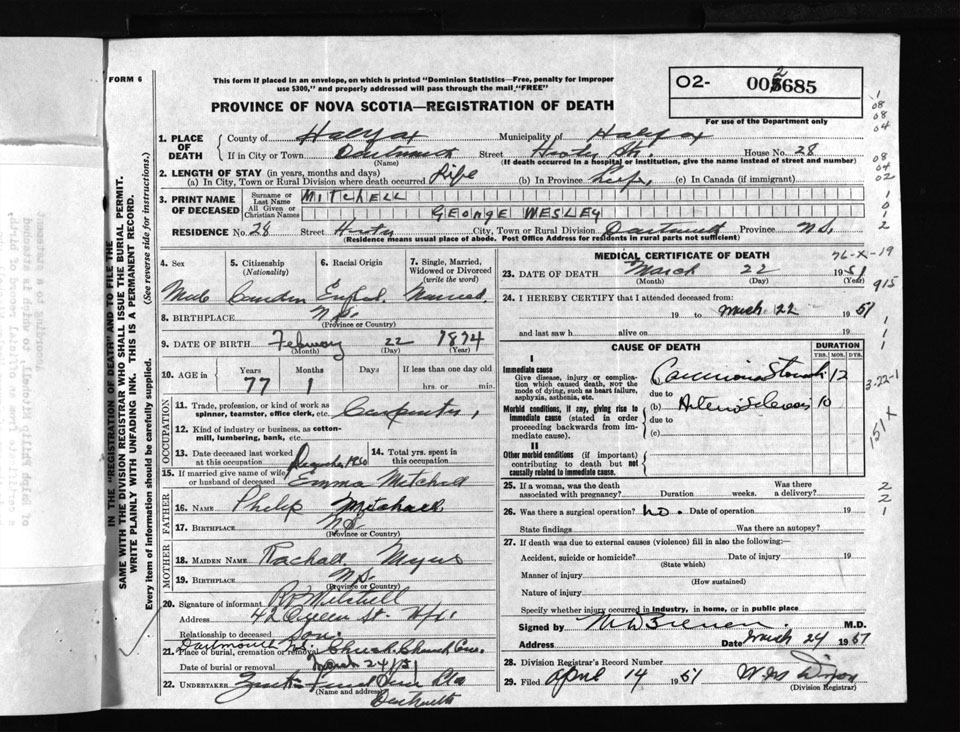 FORM 6
This form if placed in an envelope, on which is printed "Dominion Statistics—Free, penalty for improper
use $300," and properly addressed will pass through the mail "FREE"
PROVINCE OF NOVA SCOTIA—REGISTRATION OF DEATH
O2- 002685
For use of the Department only
1. PLACE OF DEATH
County of Halifax Municipality of Halifax
If in City or Town Dartmouth Street House No. 28
(Name) (If death occurred in a hospital or institution, give the name instead of street and number)
2. LENGTH OF STAY (in years, months and days)
(a) In City, Town or Rural Division where death occurred Life (b) In Province Life (c) In Canada (if immigrant)
3. PRINT NAME OF DECEASED
Surname or Last Name MITCHELL
All Given or Christian Names GEORGE WESLEY
RESIDENCE No. 28 Street City, Town or Rural Division Dartmouth Province N.S.
(Residence means usual place of abode. Post Office Address for residents in rural parts not sufficient)
4. Sex Male
5. Citizenship (Nationality) Canadian
6. Racial Origin
7. Single, Married, Widowed or Divorced (write the word) Married
8. BIRTHPLACE N.S.
(Province or Country)
9. DATE OF BIRTH February 22 1874
(Month) (Day) (Year)
10. AGE in Years Months Days If less than one day old
77 1 hrs. or min.
OCCUPATION
11. Trade, profession, or kind of work as spinner, teamster, office clerk, etc. Carpenter
12. Kind of industry or business, as cotton-mill, lumbering, bank, etc.
13. Date deceased last worked at this occupation
14. Total yrs. spent in this occupation
15. If married give name of wife or husband of deceased Emma Mitchell
FATHER
16. NAME Philip Mitchell
17. BIRTHPLACE N.S.
(Province or Country)
MOTHER
18. MAIDEN NAME Rachall Myers
19. BIRTHPLACE N.S.
(Province or Country)
20. Signature of informant Mitchell
Address 42 Queen St. Hfx.
Relationship to deceased Son.
Dartmouth N.S.
21. Place of burial, cremation or removal Church
Date of burial or removal March 24/51
22. UNDERTAKER
(Name and address)
Dartmouth
MEDICAL CERTIFICATE OF DEATH
76-X-19
23. DATE OF DEATH March 22 1951
(Month) (Day) (Year)
24. I HEREBY CERTIFY that I attended deceased from:
19 to March 22 1951
and last saw h alive on 19
CAUSE OF DEATH
DURATION
YRS. MOS. DYS.
I
Immediate cause
Give disease, injury or complication which caused death, NOT the mode of dying, such as heart failure, asphyxia, asthenia, etc.
Carcinoma Stomach 12
due to
Morbid conditions, if any, giving rise to immediate cause (stated in order proceeding backwards from immediate cause).
(b) Arterio Sclerosis 10
due to
(c)
II
Other morbid conditions (if important) contributing to death but not causally related to immediate cause.
25. If a woman, was the death associated with pregnancy? Duration weeks. Was there a delivery?
26. Was there a surgical operation? no. Date of operation 19
State findings Was there an autopsy?
27. If death was due to external causes (violence) fill in also the following:—
Accident, suicide or homicide? Date of injury 19
(State which)
Manner of injury
(How sustained)
Nature of injury
Specify whether injury occurred in industry, in home, or in public place
Signed by M.D.
Address Date March 24 1951
28. Division Registrar's Record Number
29. Filed April 14 1951
(Division Registrar)
IN THE "REGISTRATION OF DEATH" AND TO FILE THE
SAME WITH THE DIVISION REGISTRAR WHO SHALL ISSUE THE BURIAL PERMIT.
WRITE PLAINLY WITH UNFADING INK. THIS IS A PERMANENT RECORD.
Every item of information should be carefully supplied. (See reverse side for instructions.)
1
08
08
04
08
04
02
1
0
1
2
915
1
1
1
3-22-1
151X
2
2
1